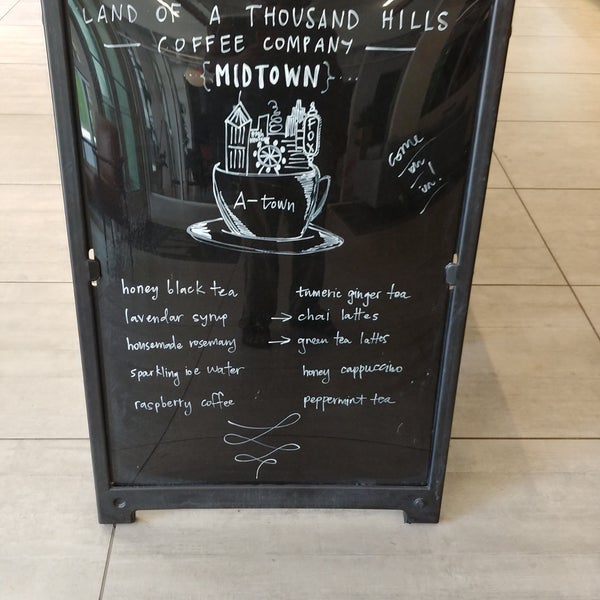 LAND OF A THOUSAND HILLS
COFFEE COMPANY
{MIDTOWN}
FOX
A-town
come
on
in!
honey black tea
lavendar syrup
housemade rosemary
sparkling ice water
raspberry coffee
tumeric ginger tea
→ chai lattes
→ green tea lattes
honey cappuccino
peppermint tea